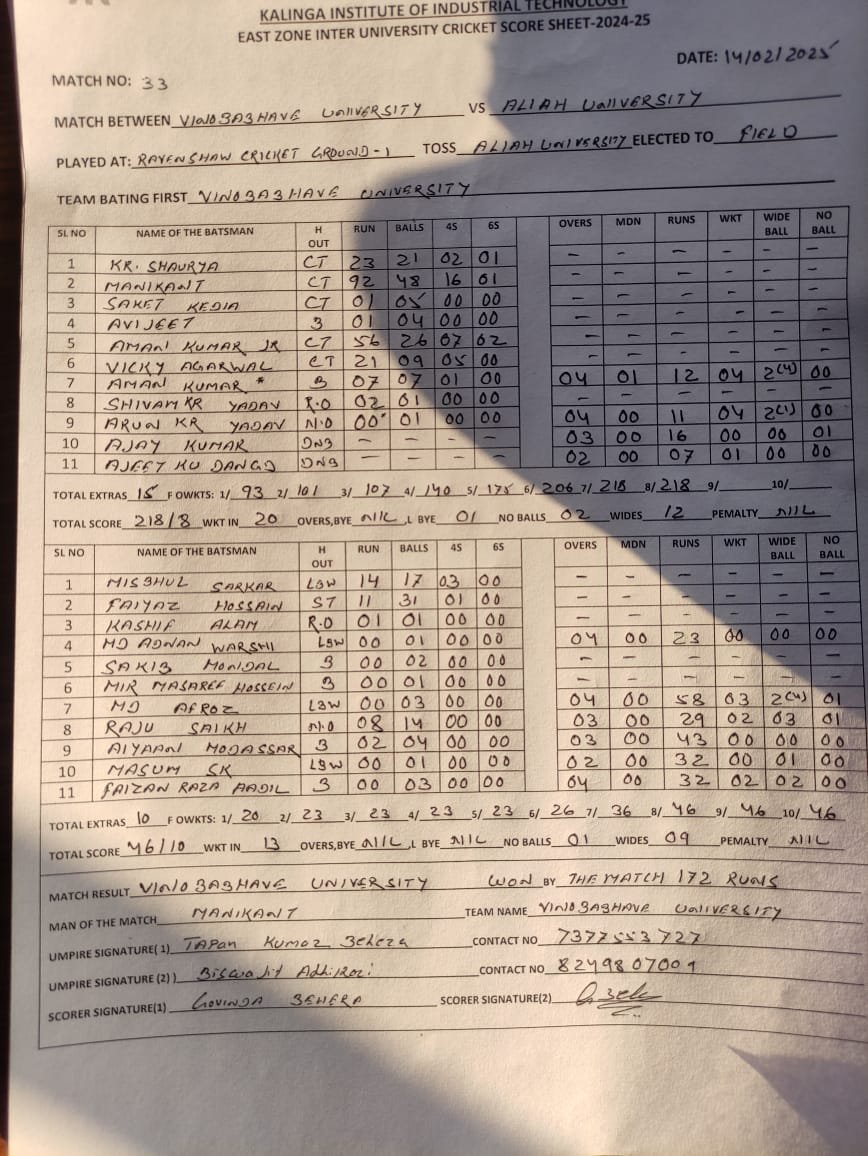 KALINGA INSTITUTE OF INDUSTRIAL TECHNOLOGY
EAST ZONE INTER UNIVERSITY CRICKET SCORE SHEET-2024-25
DATE: 14/02/2025
MATCH NO: 33
MATCH BETWEEN VINOBABHAVE UNIVERSITY VS ALIAH UNIVERSITY
PLAYED AT: RAVENSHAW CRICKET GROUND-1 TOSS ALIAH UNIVERSITY ELECTED TO FIELD
TEAM BATING FIRST VINOBABHAVE UNIVERSITY
SL NO NAME OF THE BATSMAN H OUT RUN BALLS 4S 6S OVERS MDN RUNS WKT WIDE BALL NO BALL
1 KR. SHAURYA CT 23 21 02 01 – – – – – –
2 MANIKANT CT 92 48 16 01 – – – – – –
3 SAKET KEDIA CT 01 05 00 00 – – – – – –
4 AVIJEET B 01 04 00 00 – – – – – –
5 AMAN KUMAR JR CT 56 26 07 02 – – – – – –
6 VICKY AGARWAL CT 21 09 05 00 – – – – – –
7 AMAN KUMAR * B 07 07 01 00 04 01 12 04 2(4) 00
8 SHIVAM KR YADAV R.O 02 01 00 00 – – – – – –
9 ARUN KR YADAV N.O 00* 01 00 00 04 00 11 04 2(1) 00
10 AJAY KUMAR DNB – – – – 03 00 16 00 00 01
11 AJEET KU DANGD DNB – – – – 02 00 07 01 00 00
TOTAL EXTRAS 15 F OWKTS: 1/ 93 2/ 101 3/ 107 4/ 140 5/ 175 6/ 206 7/ 218 8/ 218 9/ 10/
TOTAL SCORE 218/8 WKT IN 20 OVERS,BYE NIL ,L BYE 01 NO BALLS 02 WIDES 12 PEMALTY NIL
SL NO NAME OF THE BATSMAN H OUT RUN BALLS 4S 6S OVERS MDN RUNS WKT WIDE BALL NO BALL
1 MISBHUL SARKAR LBW 14 17 03 00 – – – – – –
2 FAIYAZ HOSSAIN ST 11 31 01 00 – – – – – –
3 KASHIF ALAM R.O 01 01 00 00 – – – – – –
4 MD ADNAN WARSHI LBW 00 01 00 00 04 00 23 00 00 00
5 SAKIB MONDAL B 00 02 00 00 – – – – – –
6 MIR MASAREF HOSSEIN B 00 01 00 00 – – – – – –
7 MD AFROZ LBW 00 03 00 00 04 00 58 03 2(4) 01
8 RAJU SAIKH N.O 08 14 00 00 03 00 29 02 03 01
9 AIYAAN MODASSAR B 02 04 00 00 03 00 43 00 00 00
10 MASUM SK LBW 00 01 00 00 02 00 32 00 01 00
11 FAIZAN RAZA AADIL B 00 03 00 00 04 00 32 02 02 00
TOTAL EXTRAS 10 F OWKTS: 1/ 20 2/ 23 3/ 23 4/ 23 5/ 23 6/ 26 7/ 36 8/ 46 9/ 46 10/ 46
TOTAL SCORE 46/10 WKT IN 13 OVERS,BYE NIL ,L BYE NIL NO BALLS 01 WIDES 09 PENALTY NIL
MATCH RESULT VINOBABHAVE UNIVERSITY WON BY THE MATCH 172 RUNS
MAN OF THE MATCH MANIKANT TEAM NAME VINOBABHAVE UNIVERSITY
UMPIRE SIGNATURE( 1) Tapan Kumar Behera CONTACT NO 7377553727
UMPIRE SIGNATURE (2) ) Biswajit Adhikari CONTACT NO 8249807009
SCORER SIGNATURE(1) GOVINDA BEHERA SCORER SIGNATURE(2)